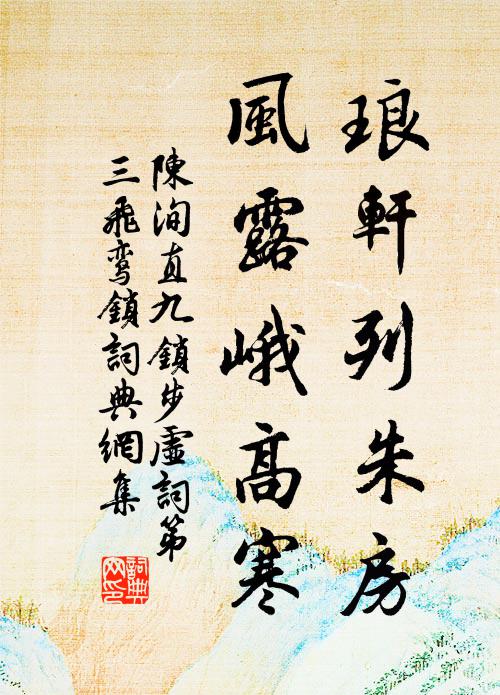 琅軒列朱房
風露峨高寒
陳洵直九鎖步虛詞第
三飛鸞鎖詞典網集
詞典
网印